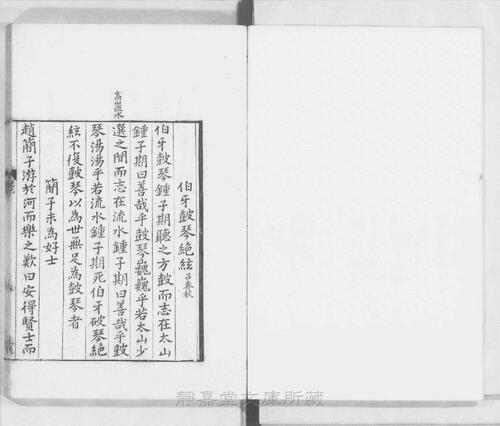 伯牙鼓琴絶絃 呂春秋
伯牙鼓琴鍾子期聽之方鼓而志在太山
鍾子期曰善哉乎鼓琴巍巍乎若太山少
選之間而志在流水鍾子期曰善哉乎鼓
琴湯湯乎若流水鍾子期死伯牙破琴絶
絃不復鼓琴以為世無足為鼓琴者
簡子未為好士
趙簡子游於河而樂之歎曰安得賢士而
高山流水
靜嘉堂文庫所藏